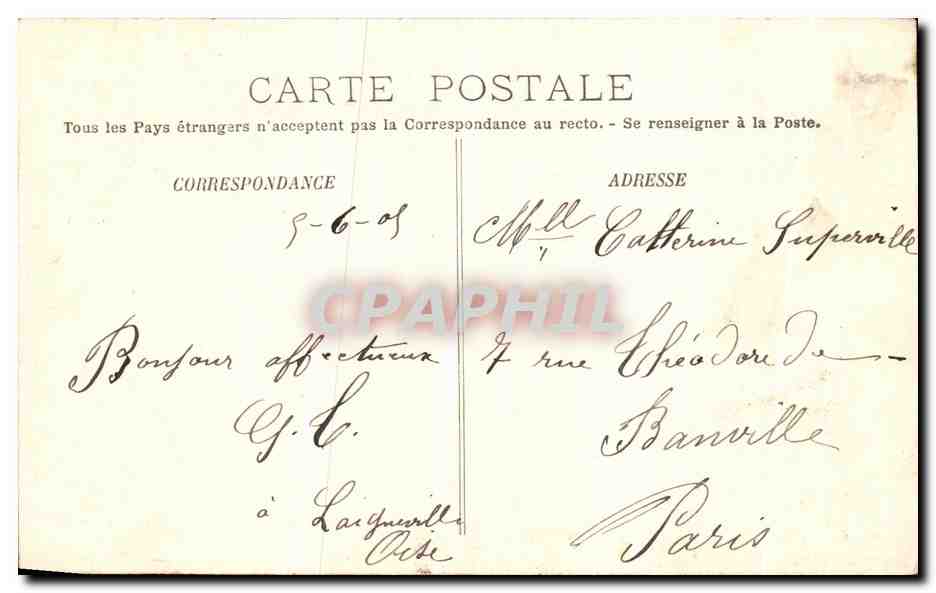 CARTE POSTALE
Tous les Pays étrangers n'acceptent pas la Correspondance au recto. - Se renseigner à la Poste.
CORRESPONDANCE
5-6-05
Bonjour affectueux
G. C.
à Laigneville
Oise
ADRESSE
Mlle Catterine Superville
7 rue Théodore de
Banville
Paris
CPAPHIL